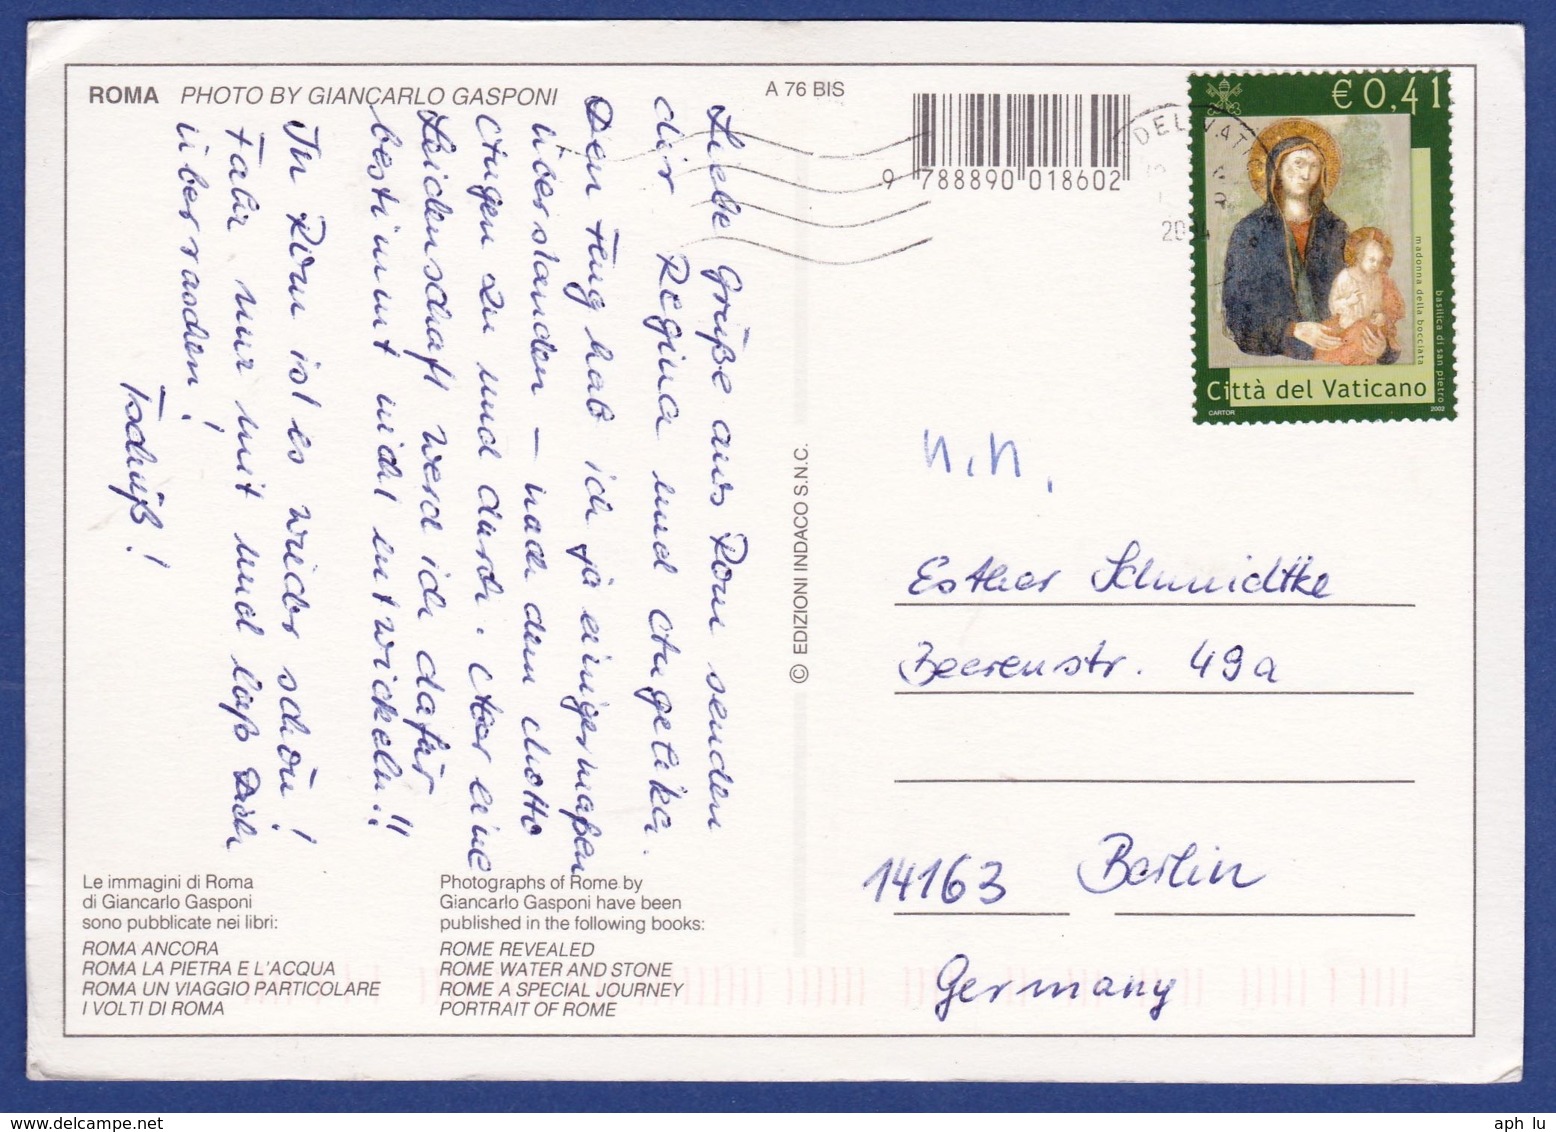 ROMA PHOTO BY GIANCARLO GASPONI
A 76 BIS
9 788890 018602
€ 0,41
madonna della bocciata
basilica di san pietro
Città del Vaticano
CARTOR 2002
Liebe Grüße aus Rom senden
dir Regina und Angelika.
Den Flug hab ich ja einigermaßen
überstanden – nach dem Motto
Augen zu und durch. Aber eine
Leidenschaft werd ich dafür
bestimmt nicht entwickeln!!
In Rom ist es wieder schön!
Fahr nur mit und laß Dich
überraschen!
Tschüß!
© EDIZIONI INDACO S.N.C.
n.n.
Esther Schmidtke
Beerenstr. 49a
14163 Berlin
Germany
Le immagini di Roma
di Giancarlo Gasponi
sono pubblicate nei libri:
ROMA ANCORA
ROMA LA PIETRA E L'ACQUA
ROMA UN VIAGGIO PARTICOLARE
I VOLTI DI ROMA
Photographs of Rome by
Giancarlo Gasponi have been
published in the following books:
ROME REVEALED
ROME WATER AND STONE
ROME A SPECIAL JOURNEY
PORTRAIT OF ROME
www.delcampe.net
aph lu